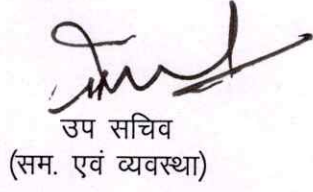 उप सचिव
(सम. एवं व्यवस्था)